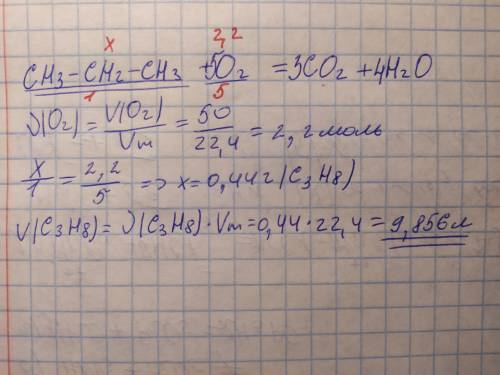 x 2,2
CH3-CH2-CH3 + 5O2 = 3CO2 + 4H2O
1 5
ν(O2) = V(O2)/Vm = 50/22,4 = 2,2 моль
x/1 = 2,2/5 => x = 0,44 г (C3H8)
V(C3H8) = ν(C3H8)·Vm = 0,44·22,4 = 9,856 л